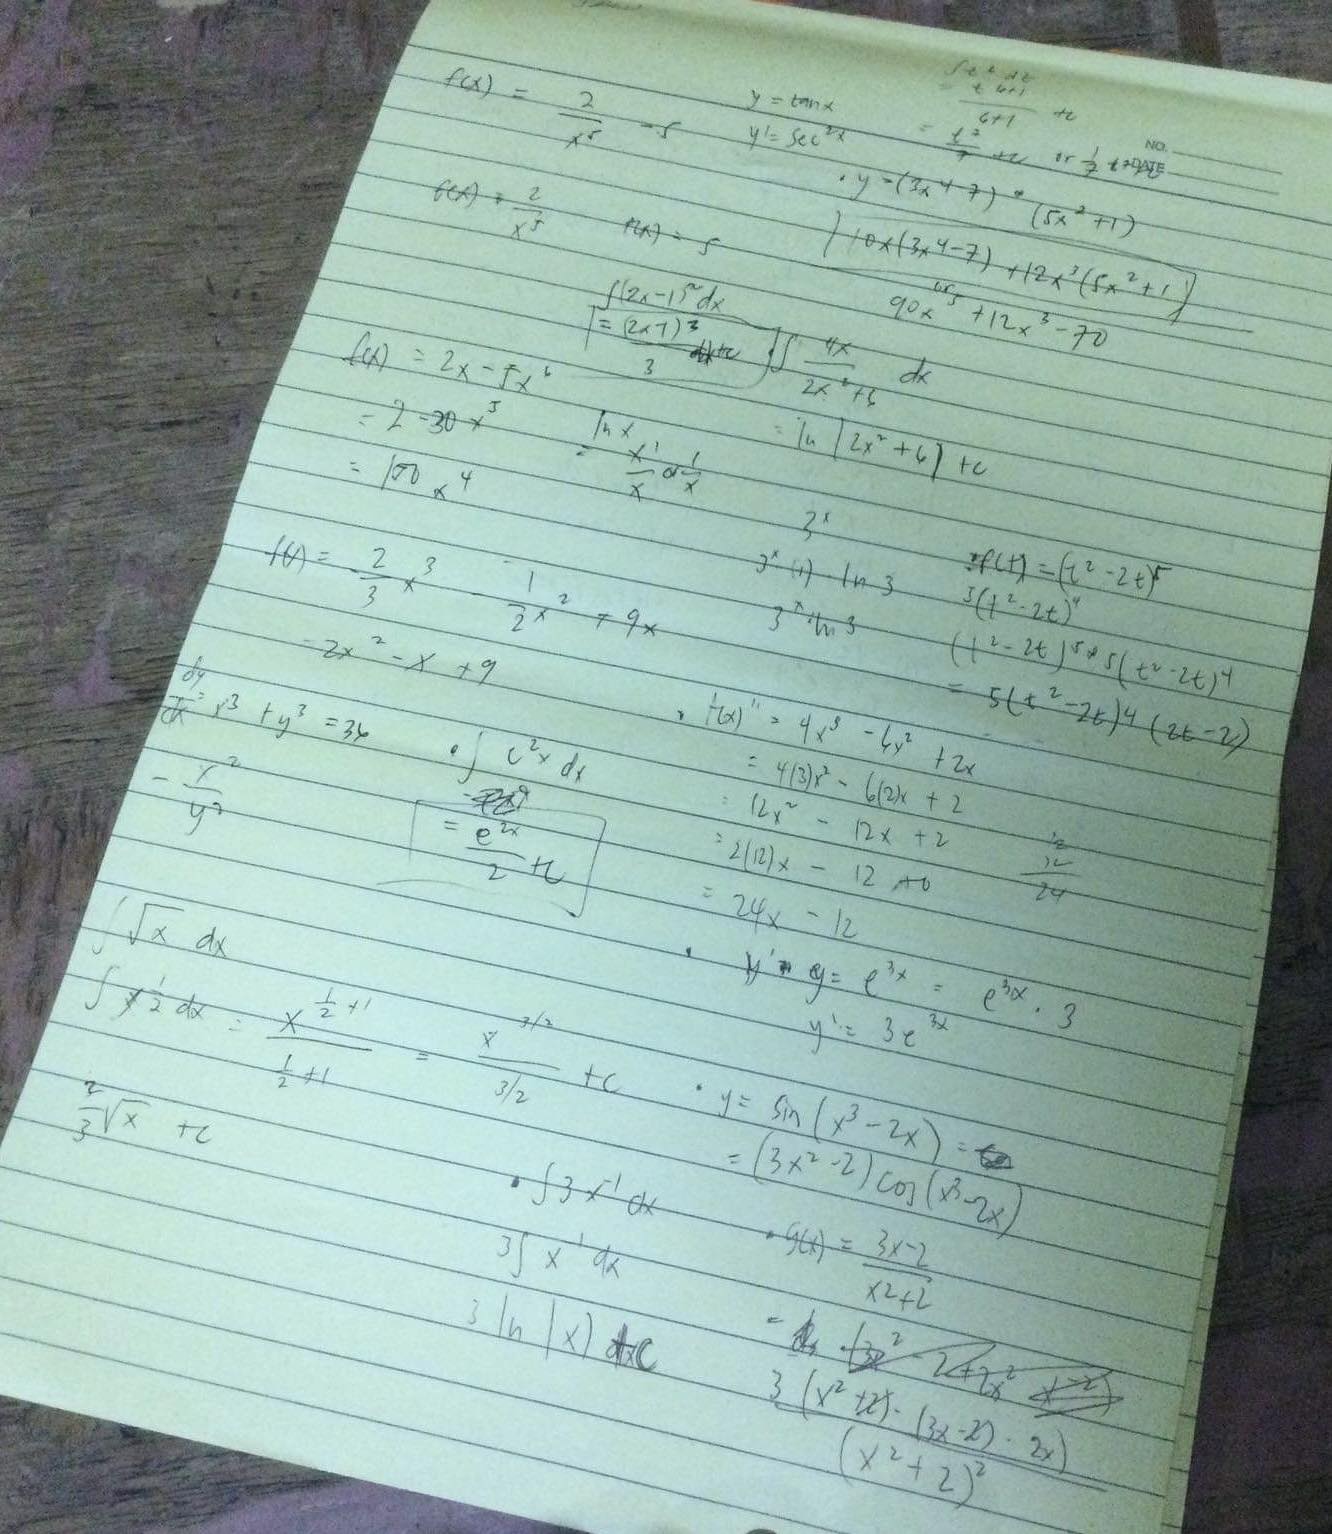 f(x) = 2/x⁵ - 5
y = tan x
y' = sec²x
t⁶⁺¹/6+1 + c
NO.
DATE
f(x) = 2/x⁵
f(x) = 5
• y = (3x⁴-7) • (5x²+1)
10x(3x⁴-7) + 12x³(5x²+1)
or
90x⁵ + 12x³ - 70
∫(2x-1)² dx
= (2x-1)³/3 + c
∫ 4x/2x²+6 dx
= ln |2x²+6| + c
f(x) = 2x - 5x⁶
= 2 - 30x⁵
= 150x⁴
ln x
= x'/x or 1/x
3ˣ
3ˣ(1) · ln 3
3ˣ ln 3
• f(t) = (t²-2t)⁵
(t²-2t)⁵ • 5(t²-2t)⁴
= 5(t²-2t)⁴ (2t-2)
f(x) = -2/3 x³ - 1/2 x² + 9x
-2x² - x + 9
dy/dx = x³ + y³ = 36
- x²/y²
• ∫ e²ˣ dx
= e²ˣ/2 + c
• f(x)'' = 4x³ - 6x² + 2x
= 4(3)x² - 6(2)x + 2
= 12x² - 12x + 2
= 2(12)x - 12 + 0
= 24x - 12
12
12
24
• y = e³ˣ = e³ˣ · 3
y' = 3e³ˣ
∫ √x dx
∫ x^1/2 dx = x^(1/2+1)/(1/2+1) = x^3/2/(3/2) + c
2/3 √x + c
• y = sin (x³-2x) =
= (3x²-2) cos(x³-2x)
• ∫ 3x⁻¹ dx
3∫ x⁻¹ dx
3 ln |x| + c
• g(x) = 3x-2/x2+2
3(x²+2) - (3x-2) · 2x)
(x²+2)²